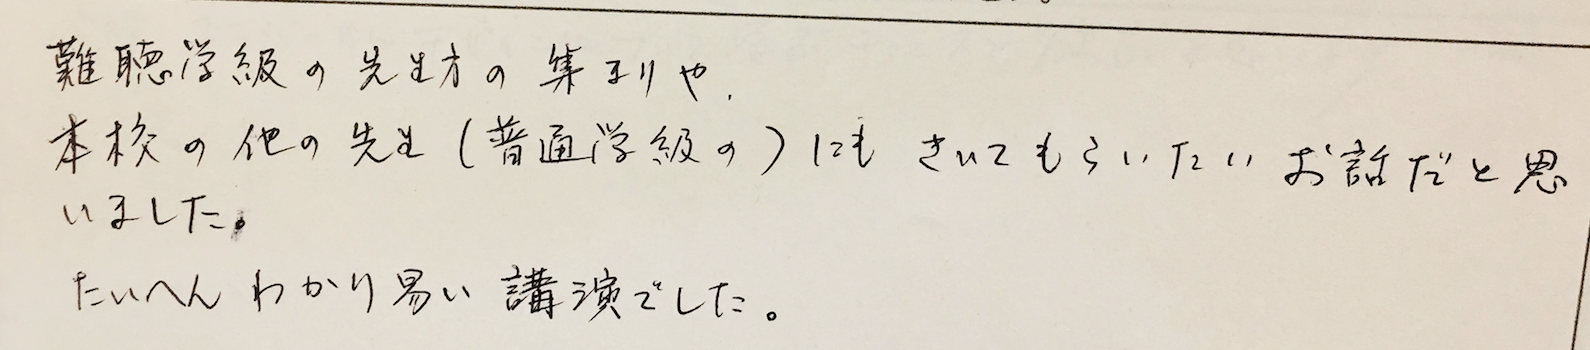 難聴学級の先生方の集まりや、
本校の他の先生(普通学級の)にもきいてもらいたいお話だと思
いました。
たいへんわかり易い講演でした。